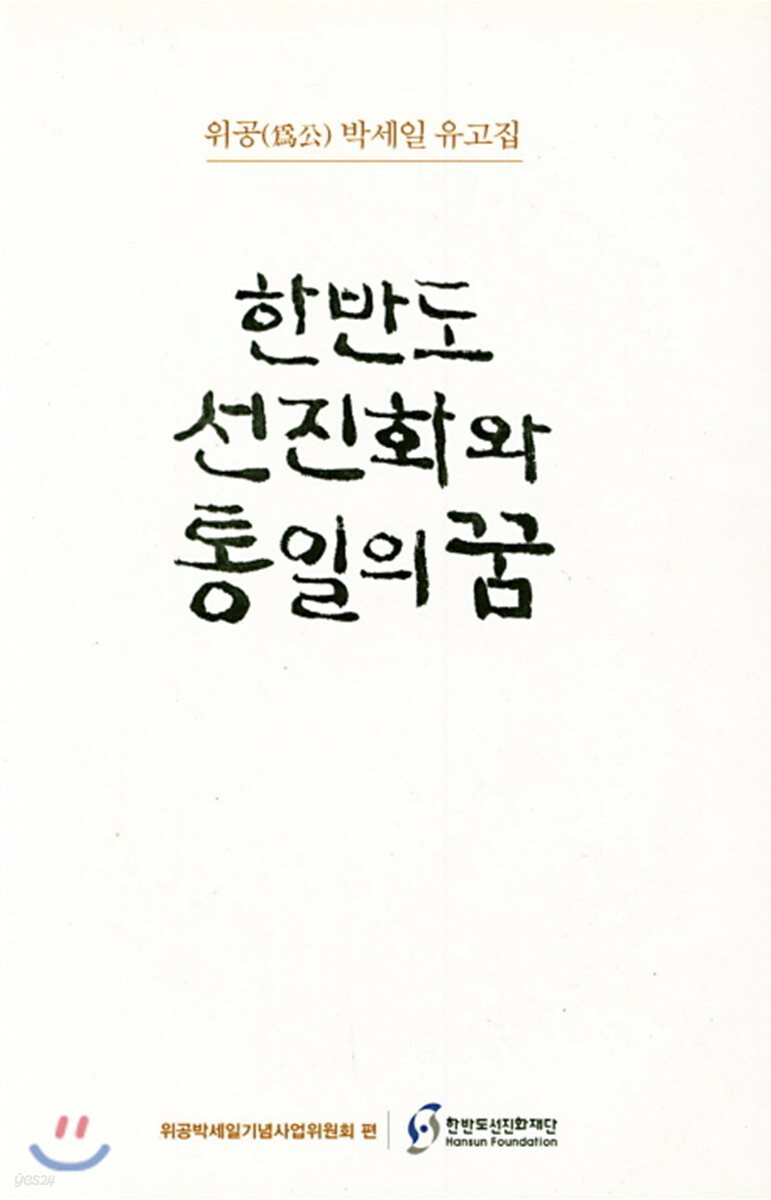 위공(爲公) 박세일 유고집
한반도
선진화와
통일의 꿈
위공박세일기념사업위원회 편
한반도선진화재단
Hansun Foundation
yes24